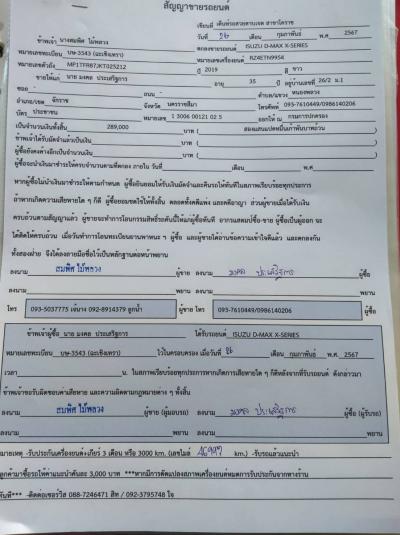 สัญญาขายรถยนต์
เขียนที่ เต็นท์รถสวยตาบเจต สาขาโคราช
วันที่ 26 เดือน กุมภาพันธ์ พ.ศ. 2567
ข้าพเจ้า นางสมพิศ ไม้พลวง ตกลงขายรถยนต์ ISUZU D-MAX X-SERIES
หมายเลขทะเบียน บษ-3543 (ฉะเชิงเทรา) หมายเลขเครื่องยนต์ RZ4ETN9954
หมายเลขตัวถัง MP1TFR87JKT025212 ปี 2019 สี ขาว
ขายให้แก่ นาย มงคล ประเสริฐการ อายุ 35 ปี อยู่บ้านเลขที่ 26/2 ม.1
ซอย - ถนน - ตำบล/แขวง หนองพลวง
อำเภอ/เขต จักราช จังหวัด นครราชสีมา โทรศัพท์ 093-7610449/0986140206
บัตร ประชาชน หมายเลข 1 3006 00121 02 5 ออกให้ ณ กรมการปกครอง
เป็นจำนวนเงินทั้งสิ้น 289,000 บาท ( สองแสนแปดหมื่นเก้าพันบาทถ้วน )
ข้าพเจ้าได้รับมัดจำแล้วเป็นเงิน บาท ( )
ผู้ซื้อยังคงค้างอีกเป็นจำนวนเงิน บาท ( )
ผู้ซื้อจะนำเงินมาชำระให้ครบจำนวนตามที่ตกลง ภายใน วันที่ เดือน พ.ศ.
หากผู้ซื้อไม่นำเงินมาชำระให้ตามกำหนด ผู้ซื้อยินยอมให้รับเงินมัดจำและคืนรถให้ทันทีในสภาพเรียบร้อยทุกประการ
ถ้าหากเกิดความเสียหายใด ๆ ก็ดี ผู้ซื้อยอมชดใช้ให้ทั้งสิ้น ตลอดทั้งคดีแพ่ง และคดีอาญา ส่วนผู้ขายเมื่อได้รับเงิน
ครบถ้วนตามสัญญาแล้ว ผู้ขายจะทำการโอนกรรมสิทธิ์รถคันนี้ให้แก่ผู้ซื้อทันที ถ้ากรมสรรพ์ซื้อ ขาย ผู้ซื้อเป็นผู้ออก จะ
ได้คิดให้ครบถ้วน เมื่อวันทำการโอนทะเบียนยานพาหนะ ๆ ผู้ซื้อ และผู้ขายได้อ่านข้อความเข้าใจดีแล้ว และตกลงกัน
ทั้งสองฝ่าย จึงได้ลงลายมือชื่อไว้เป็นหลักฐานต่อหน้าพยาน
ลงนาม สมพิศ ไม้พลวง ผู้ขาย ลงนาม มงคล ประเสริฐการ ผู้ซื้อ
ลงนาม พยาน ลงนาม พยาน
โทร 093-5037775 เจ๊นาง 092-8914379 ลูกน้ำ ผู้ขาย โทร 093-7610449/0986140206 ผู้ซื้อ
ข้าพเจ้าผู้ซื้อ นาย มงคล ประเสริฐการ ได้รับรถยนต์ ISUZU D-MAX X-SERIES
หมายเลขทะเบียน บษ-3543 (ฉะเชิงเทรา) ไว้ในครอบครอง เมื่อวันที่ 26 เดือน กุมภาพันธ์ พ.ศ. 2567
เวลา น. ในสภาพเรียบร้อยทุกประการหากเกิดการเสียหายใด ๆ ก็ดีหลังจากที่รับรถยนต์ ดังกล่าวมา
ข้าพเจ้าขอรับผิดชอบค่าเสียหาย และความผิดตามกฎหมายต่าง ๆ ทั้งสิ้น
ลงนาม สมพิศ ไม้พลวง ผู้ขาย (ผู้มอบรถ) ลงนาม มงคล ประเสริฐการ ผู้ซื้อ (ผู้รับรถ)
ลงนาม พยาน ลงนาม พยาน
หมายเหตุ -รับประกันเครื่องยนต์+เกียร์ 3 เดือน หรือ 3000 km. (เลขไมล์ km.) -รับรถแล้วแนะนำ
ลูกค้ามาซื้อรถให้ค่าแนะนำคันละ 3,000 บาท ***หากมีการดัดแปลงสภาพเครื่องยนต์หมดการรับประกันจากทางร้าน
ทันที*** -ติดต่อเซอร์วิส 088-7246471 สิท / 092-3795748 ใจ